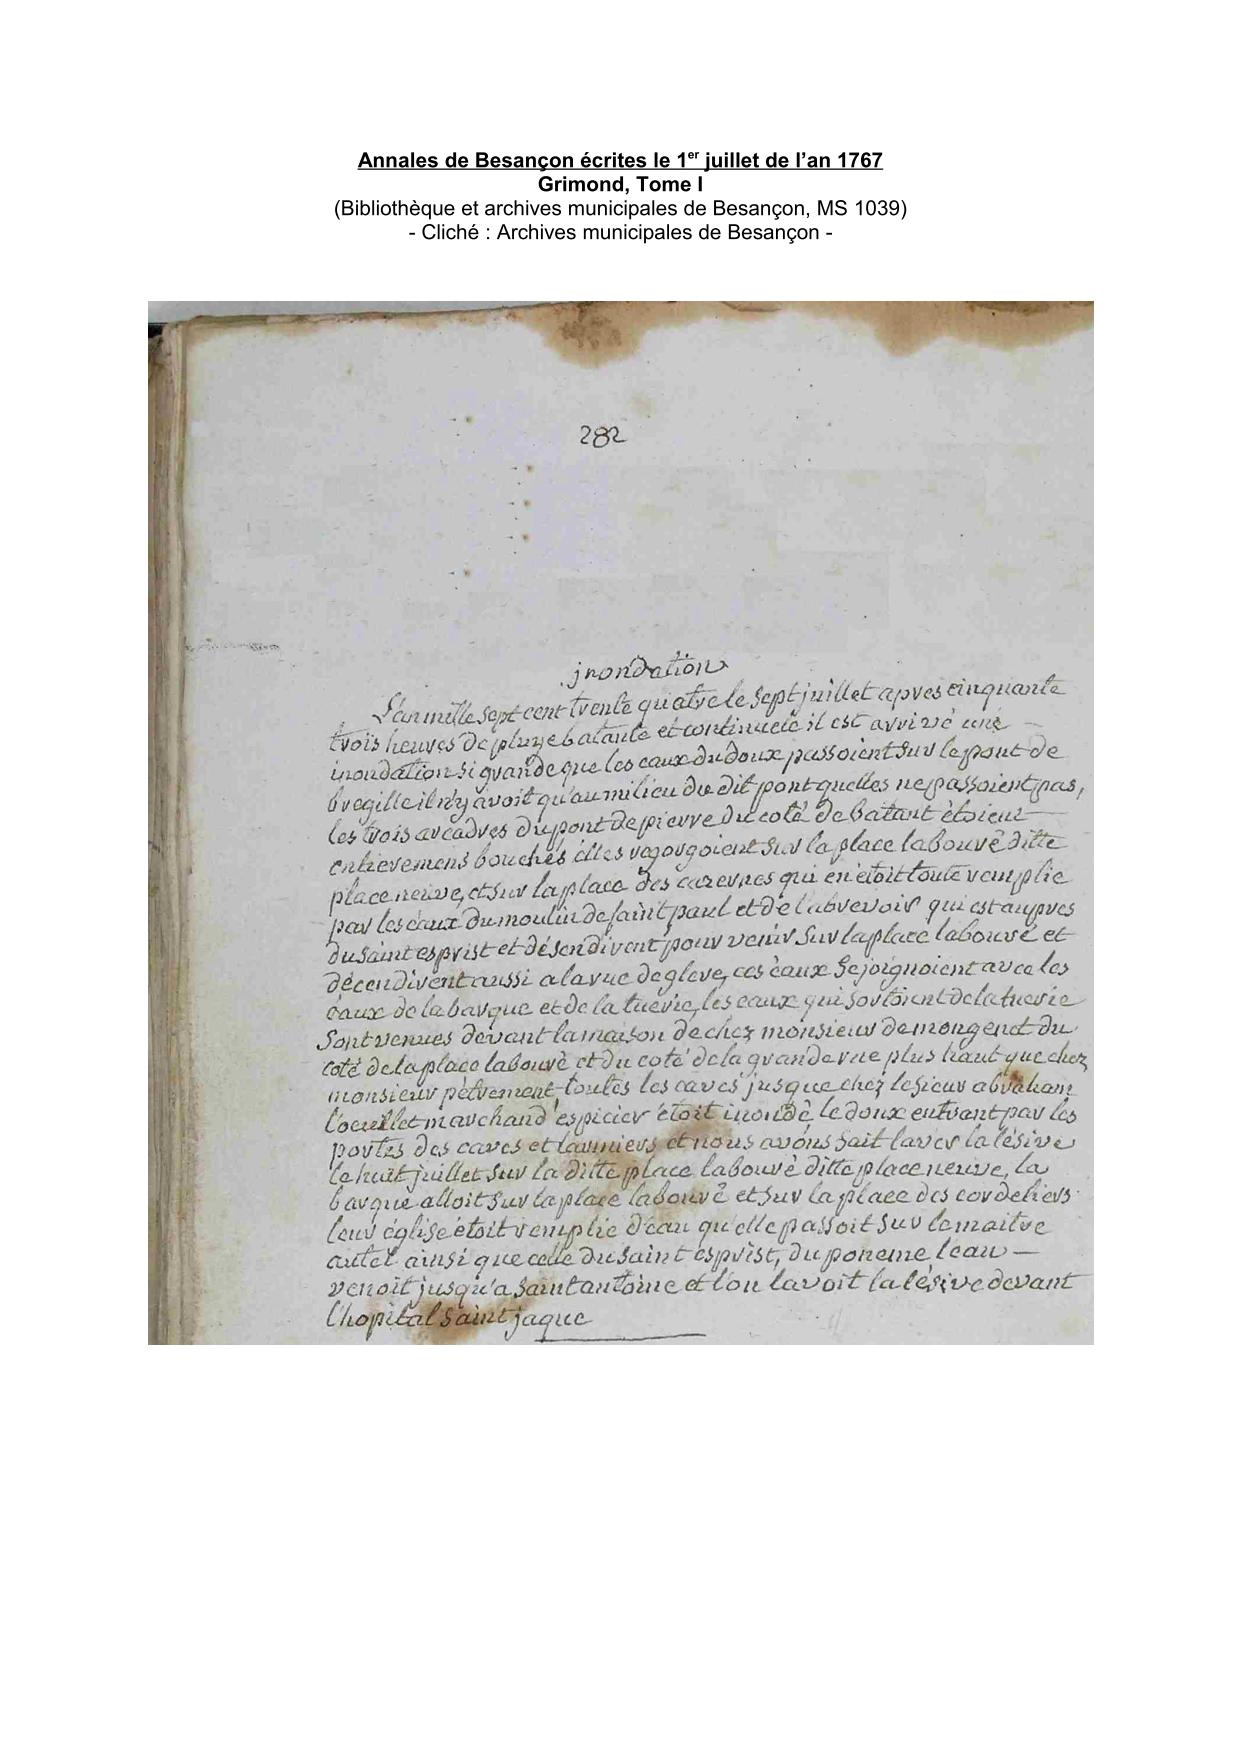 Annales de Besançon écrites le 1er juillet de l'an 1767
Grimond, Tome I
(Bibliothèque et archives municipales de Besançon, MS 1039)
- Cliché : Archives municipales de Besançon -
282
jnondation
L'an mille sept cent trente quatre le sept juillet apres cinquante
trois heures de pluye batante et continuele il est arrivé une
inondation si grande que les eaux du doux passoient sur le pont de
bregille il n'y avoit qu'au milieu du dit pont quelles ne passoient pas,
les trois arcadres du pont de pierre du coté de batant étoient
entierement bouchés elles regorgoient sur la place labouré ditte
place neuve, et sur la place des cazernes qui en étoit toute remplie
par les eaux du moulin de saint paul et de l'abrevoir qui est aupres
du saint esprist et désendirent pour venir sur la place labouré et
décendirent aussi a la rue de glere, ces éaux se joignoient avec les
éaux de la barque et de la tuerie, les eaux qui sortoient de la tuerie
sont venues devant la maison de chez monsieur demongenet du
coté de la place labouré et du coté de la grande rue plus haut que chez
monsieur pétrement toutes les caves jusque chez le sieur abraham
l'oeuillet marchand espicier étoit inondé le doux entrant par les
portes des caves et larmiers et nous avons fait laver la lésive
le huit juillet sur la ditte place labouré ditte place neuve, la
barque alloit sur la place labouré et sur la place des cordeliers
leur église étoit remplie d'eau qu'elle passoit sur le maitre
autel ainsi que celle du saint esprist, du poneme l'eau
venoit jusqu'a saint antoine et l'on lavoit la lésive devant
l'hopital saint jaque